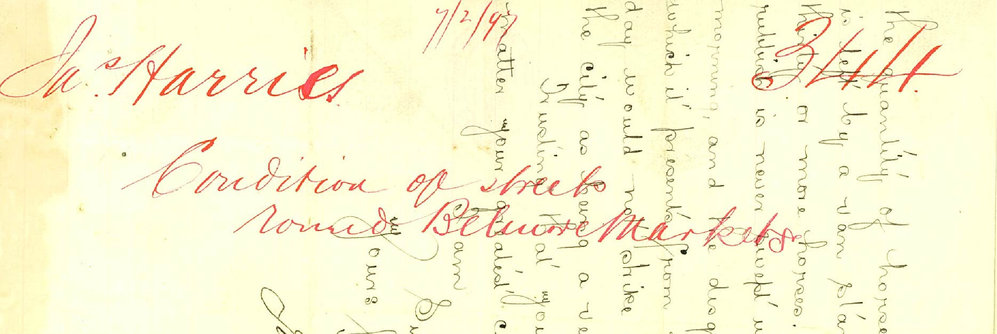 7/2/97
Jas. Harries
344
Condition of streets
round Belmore Markets
the quantity of horse
is left by a van sta
thirty or more horses.
rubbish is never swept u
morning, and the disg
which it presents from
day would not strike
the city as being a ve
Trusting that you
matter your valued c
am
Yours